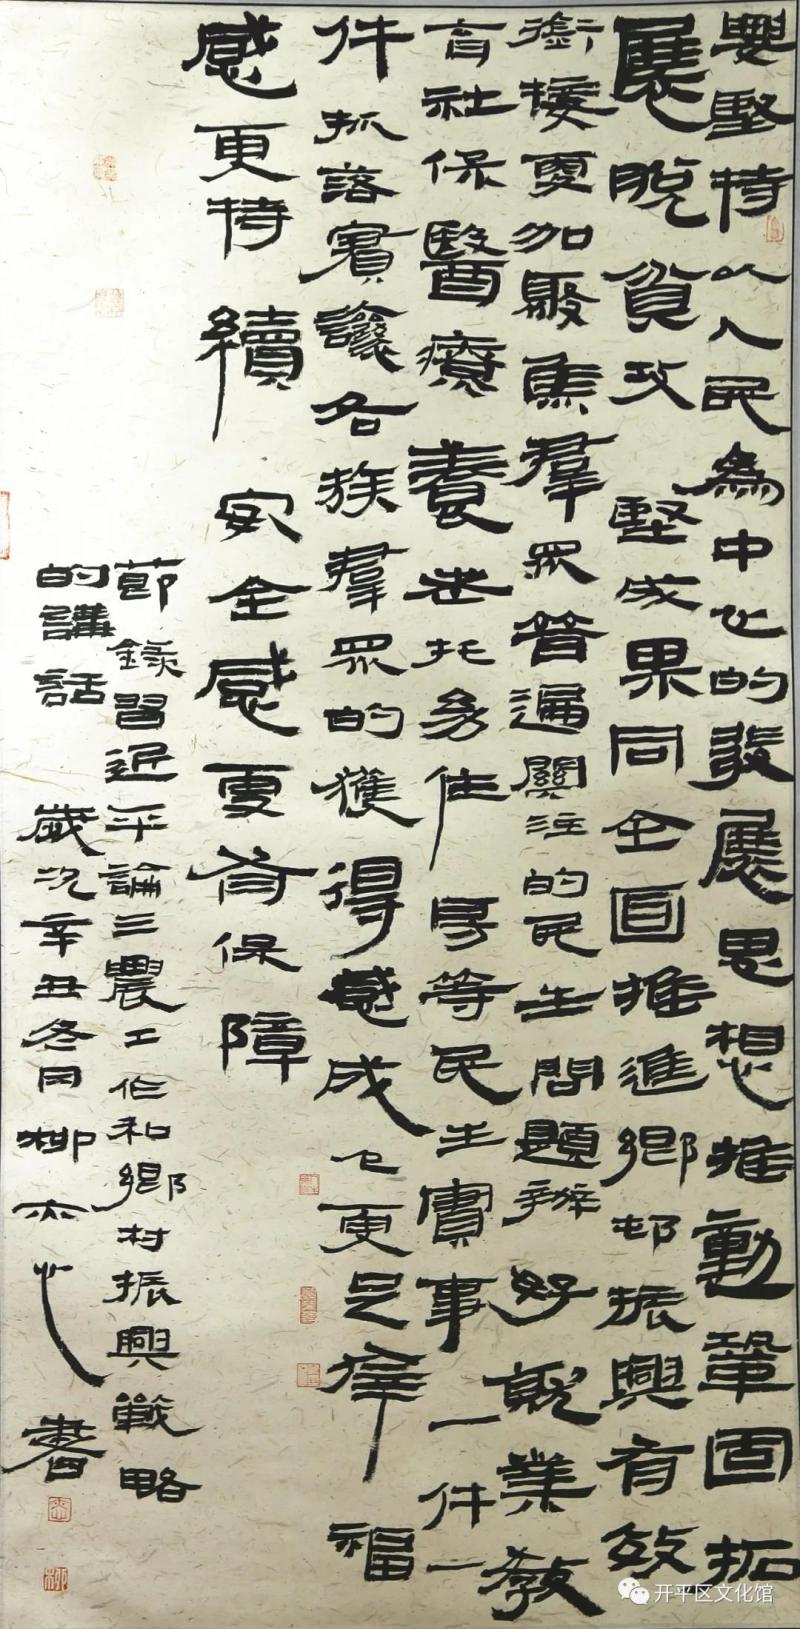 要堅持以人民為中心的發展思想推動鞏固拓
展脫貧攻堅成果同全面推進鄉邨振興有效
銜接更加聚焦羣眾普遍關注的民生問題辦好就業教
育社保醫療養老托幼住房等民生實事一件一
件抓落實讓各族羣眾的獲得感成色更足幸福
感更持續安全感更有保障
節錄習近平論三農工作和鄉村振興戰略
的講話歲次辛丑冬月柳書
开平区文化馆